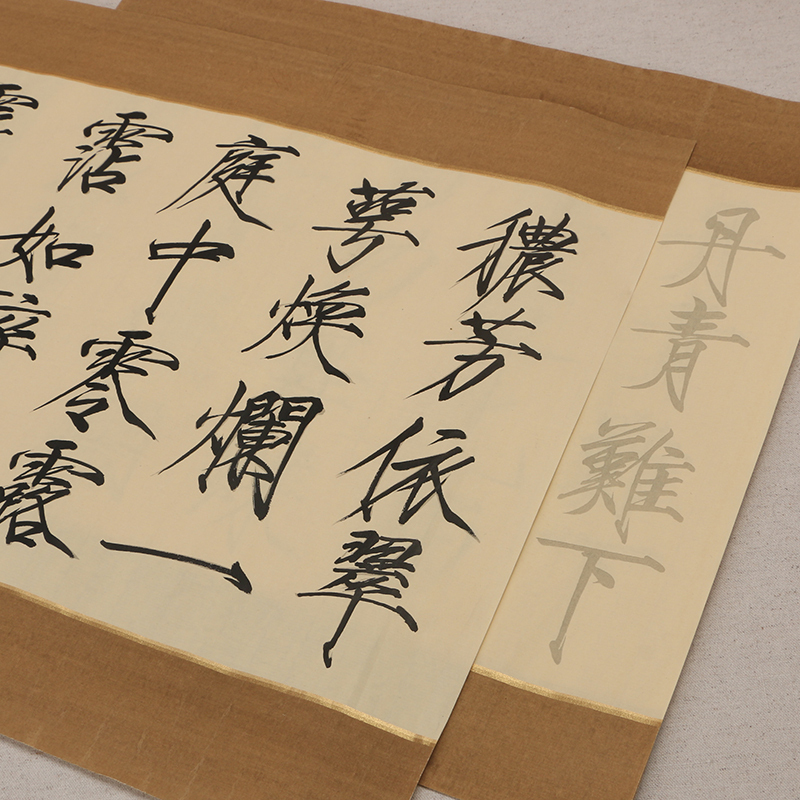 丹青難下
穠芳依翠
萼煥爛一
庭中零露
霑如